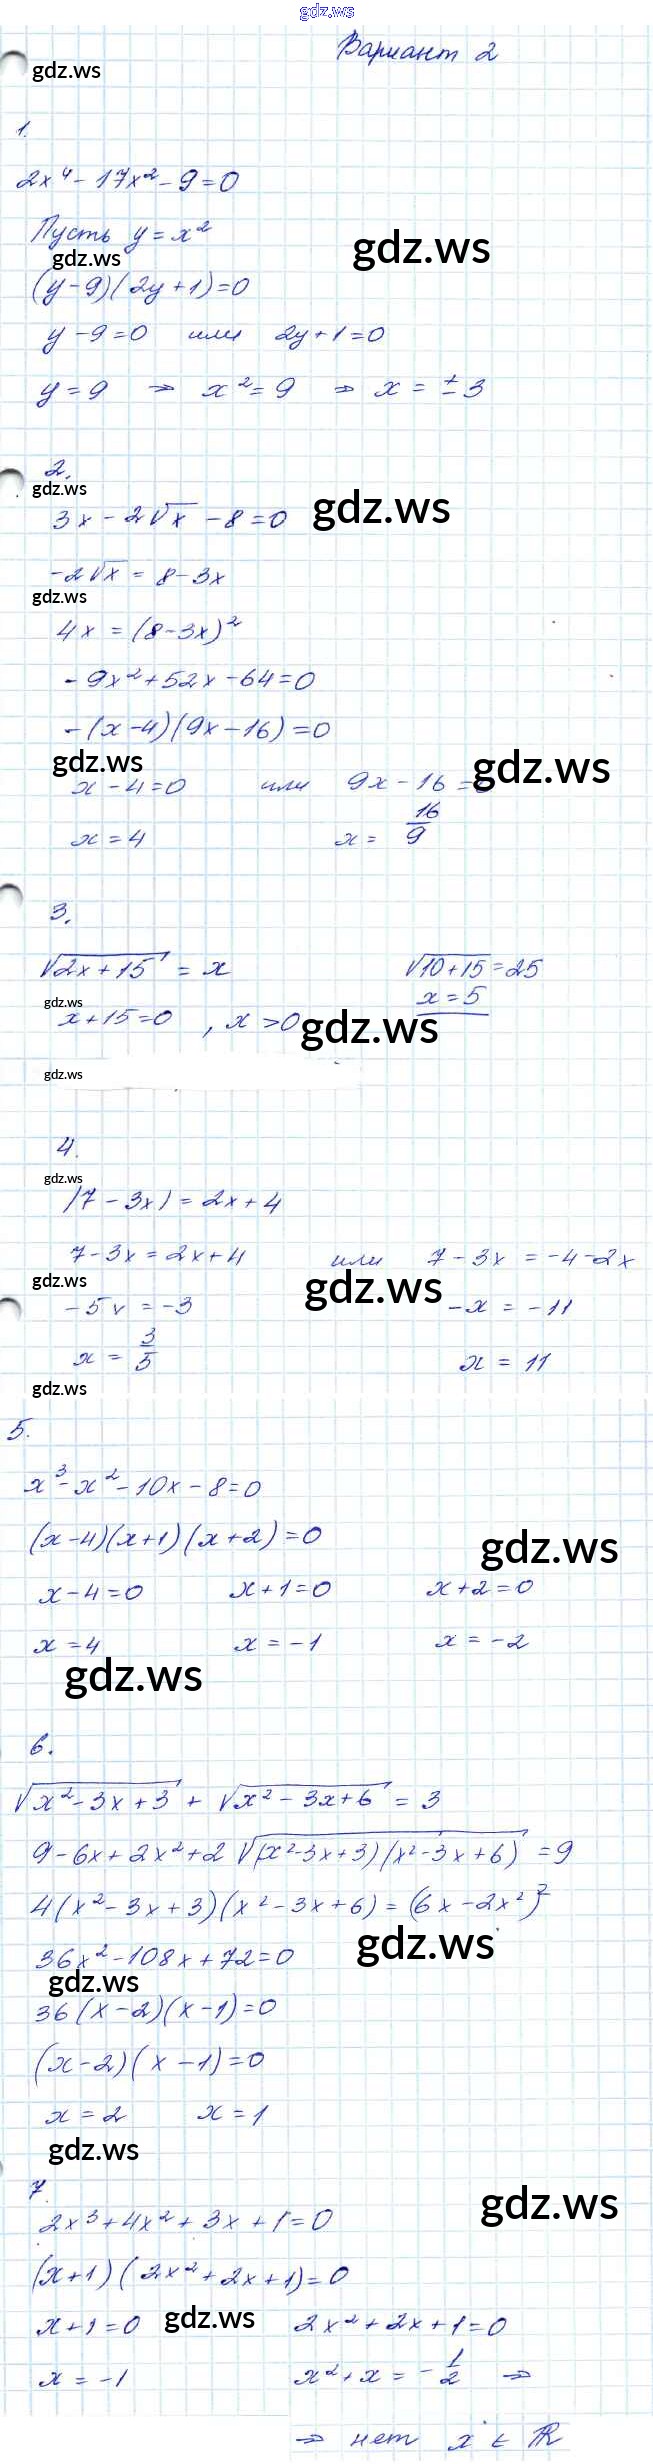 gdz.ws
Вариант 2
gdz.ws
1.
2x⁴ - 17x² - 9 = 0
Пусть y = x²
gdz.ws
gdz.ws
(y - 9)(2y + 1) = 0
y - 9 = 0 или 2y + 1 = 0
y = 9 ⇒ x² = 9 ⇒ x = ± 3
2.
gdz.ws
gdz.ws
3x - 2√x - 8 = 0
-2√x = 8 - 3x
gdz.ws
4x = (8 - 3x)²
- 9x² + 52x - 64 = 0
- (x - 4)(9x - 16) = 0
gdz.ws
gdz.ws
x - 4 = 0 или 9x - 16 = 0
x = 4 x = 16/9
3.
√(2x + 15) = x √(10 + 15) = 25
gdz.ws x = 5
x + 15 = 0 , x > 0 gdz.ws
gdz.ws
4.
gdz.ws
|7 - 3x| = 2x + 4
7 - 3x = 2x + 4 или 7 - 3x = -4 - 2x
gdz.ws gdz.ws
-5x = -3 -x = -11
x = 3/5 x = 11
gdz.ws
5.
x³ - x² - 10x - 8 = 0
(x - 4)(x + 1)(x + 2) = 0
gdz.ws
x - 4 = 0 x + 1 = 0 x + 2 = 0
x = 4 x = -1 x = -2
gdz.ws
6.
√(x² - 3x + 3) + √(x² - 3x + 6) = 3
9 - 6x + 2x² + 2√((x² - 3x + 3)(x² - 3x + 6)) = 9
4(x² - 3x + 3)(x² - 3x + 6) = (6x - 2x²)²
gdz.ws
36x² - 108x + 72 = 0
gdz.ws
36(x - 2)(x - 1) = 0
(x - 2)(x - 1) = 0
x = 2 x = 1
gdz.ws
7.
gdz.ws
2x³ + 4x² + 3x + 1 = 0
(x + 1)(2x² + 2x + 1) = 0
gdz.ws
x + 1 = 0 2x² + 2x + 1 = 0
x = -1 x² + x = - 1/2 ⇒
⇒ нет x ∈ ℝ